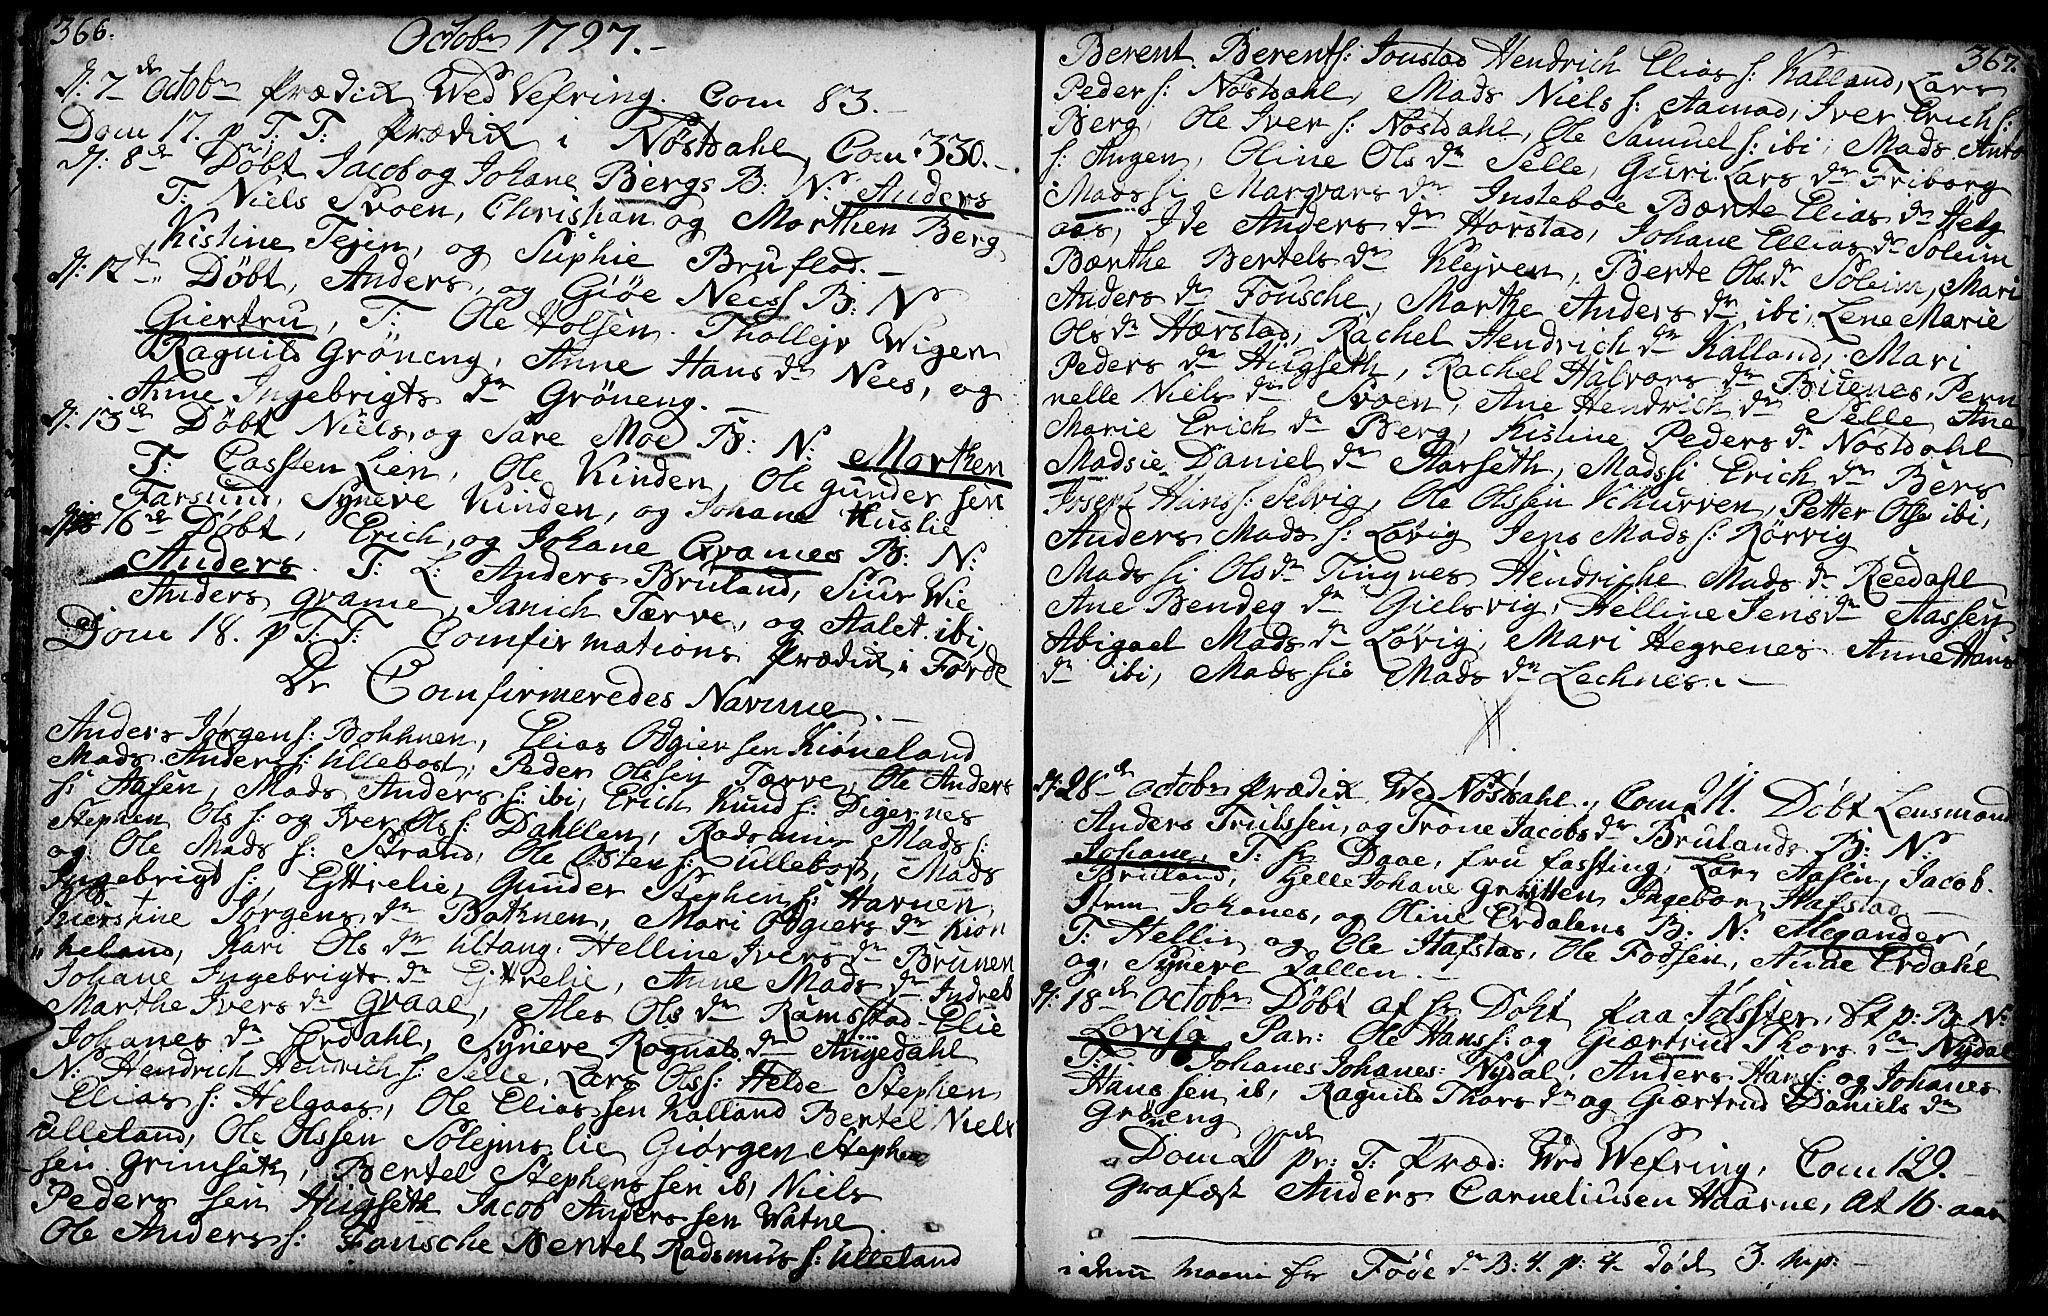 366.
Octobr 1797.-
D: 7de Octobr Prædick Wed Vefring. Com 83.-
Dom 17. p T: T: Prædick i Nøstdahl, Com: 330.-
D: 8de Døbt Jacob og Johane Bergs B: N: Anders
T: Niels Svoen, Christian og Morthen Berg
Kistine Tejen, og Suphie Bruflod.-
D: 12te Døbt, Anders, og Giøe Nees B: N
Giertru, T: Ole Holsen. Thollejv Wigen
Ragnild Grøneng, Anne Hans dr Nees, og
Anne Ingebrigts dr Grøneng.-
D: 13de Døbt Niels, og Sare Moe B: N: Morthen
T: Casten Lien, Ole Kinden, Ole gunder sen
Farsund, Syneve Kinden, og Johane Huslie
16de Døbt, Erich, og Johane Grames B: N:
Anders. T: L: Anders Bruland, Siur Wie
Anders grame, Janich Tærve, og Aalet ibi,
Dom 18. p T: T: Comfirmations Prædick i Førde
De Comfirmeredes Navnne.-
Anders Jørgen s: Bohknen, Elias Odgier sen Kiøneland
Mads Anders s: Ullebost, Peder Olssen Tærve, Ole Anders
s: Aasen, Mads Anders s: ibi, Erich Knud s: Digernes
Stephen Ols s: og Iver Ols s: Dahllen, Radsmus Mads s:
og Ole Mads s: Strand, Ole Østen s: Ullebost, Mads
Ingebrigt s: Eittrelie, Gunder Stephen s: Havnen,
Kierstine Jørgens dr Bathnen, Mari Odgiers dr Kiøn
neland, Kari Ols dr Ultang. Helline Ivers dr Brunen
Johane Ingebrigts dr Eittrelie, Anne Mads dr Indreb
Marthe Ivers dr graae, Ales Ols dr Ramsstad. Elie
Johanes dr Erdahl, Syneve Rognals dr Angedahl
N: Hendrich Henrich s: Selle, Lars Ols s: Helde Stephen
Elias s: Helgaas, Ole Elias sen Kalland Bertel Niels
Ulleland, Ole Olssen Solejms lie Giørgen Stephen
sen Grimseth, Bertel Stephens sen ibi Niels
Peders sen Hugseth Jacob Anders sen Watne
Ole Anders s: Fousche Bertel Radsmus s: Ulleland
367.
Berent Berent s: Joustad Hendrich Elias s: Kalland, Lars
Peder s: Nøstdahl, Mads Niels s: Aamod, Iver Erich s:
Berg, Ole Iver s: Nøstdahl, Ole Samuel s: ibi, Mads Anto
s: Angen, Oline Ols dr Selle, Guri Lars dr Friborg
Madssi Margvars dr Insteboe Bænte Elias dr Helg
aas, Ide Anders dr Harstad, Johane Ellias dr Soleim
Bærthe Bertels dr Klejven, Berte Ols dr Soleim, Mari
Anders dr Fousche, Marthe Anders dr ibi, Lene Marie
Ols dr Harstad, Rachel Hendrich dr Kalland, Mari
Peders dr Hugseth, Rachel Halvors dr Buenes, Pern
nelle Niels dr Svoen, Ane Hendrich dr Selle Ane
Marie Erich dr Berg, Kistine Peders dr Nøstdahl
Madsie Daniel dr Aarseth, Madssi Erich dr Berg
Joseph Hans s: Selvig, Ole Olssen Schurven, Petter Ols s ibi,
Anders Mads s: Løvig Jens Mads s: Rørvig
Mads si Ols dr Tingnes Hendriche Mads dr Reedahl
Ane Bendeg dr Gielsvig, Helline Jens dr Aassen
Abigael Mads dr Løvig, Mari Hegrenes Anne Hans
dr ibi, Mads sie Mads dr Lechnes.-
D: 28de Octobr Prædick Wed Nøstdahl., Com 211. Døbt Lensmand
Anders Trulssen, og Trone Jacobs dr Brulands B: N:
Johane, T: hr Daae, fru Fassting, Lars Aasen, Jacob
Bruland, Helle Johane Gretten Ingebor Hafstad
Item Johanes, og Oline Erdalens B: N: Megander,
T: Hellin og Ole Hafstad, Ole Fodsen, Anne Erdahl
og Syneve Dallen.-
D: 18de Octobr Døbt af hr Dohl paa Jølster, Et p: B: N:
Lovisa Par: Ole Hans s: og Giærtrud Thors dr Nydal
T: Johanes Johanes: Nydal, Anders Hans s: og Johanes
Hanssen ib, Ragnild Thors dr og Giærtrud Daniels dr
Grøneng
Dom 20de pr: T: Præd: Wed Wefring, Com 129.-
Grafæst Anders Carneliusen Haarne, At 16. aar
i denne maani for Føde dr B: 4. p: 4. døde 3. mp: